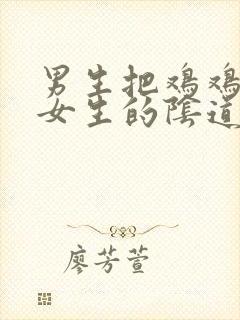 男生把鸡鸡
女生的陰道
廖芳萱